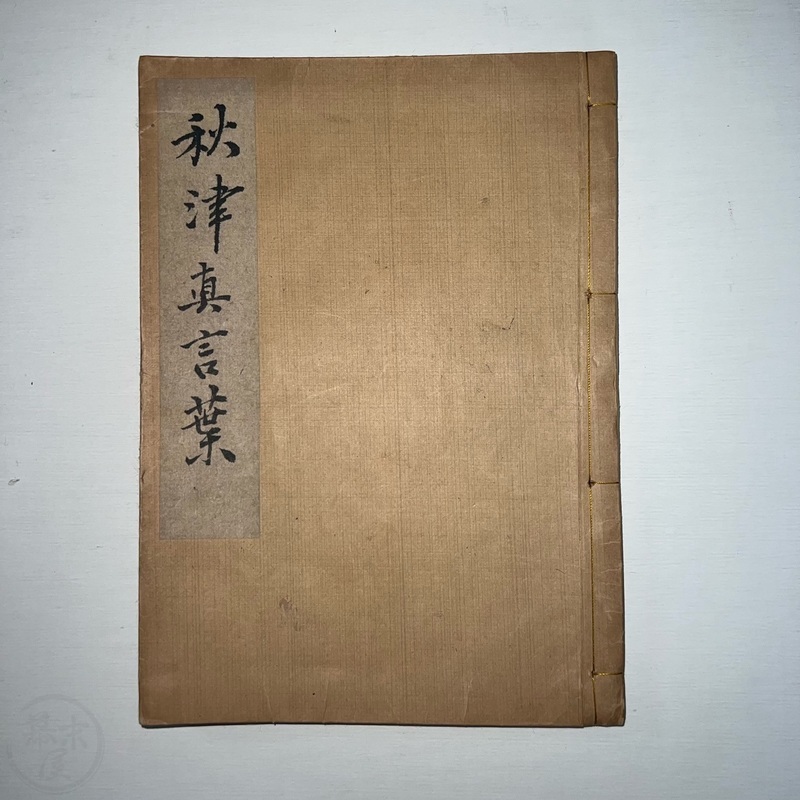 秋津真言葉